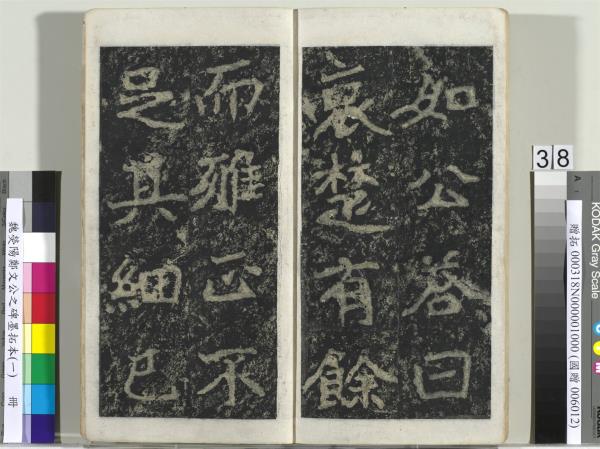 如公答曰
哀楚有餘
而雅正不
足其細已
38
A
KODAK Gray Scale
贈拓 000318N000001000 (國贈 006012)
魏滎陽鄭文公之碑墨拓本(一) 冊